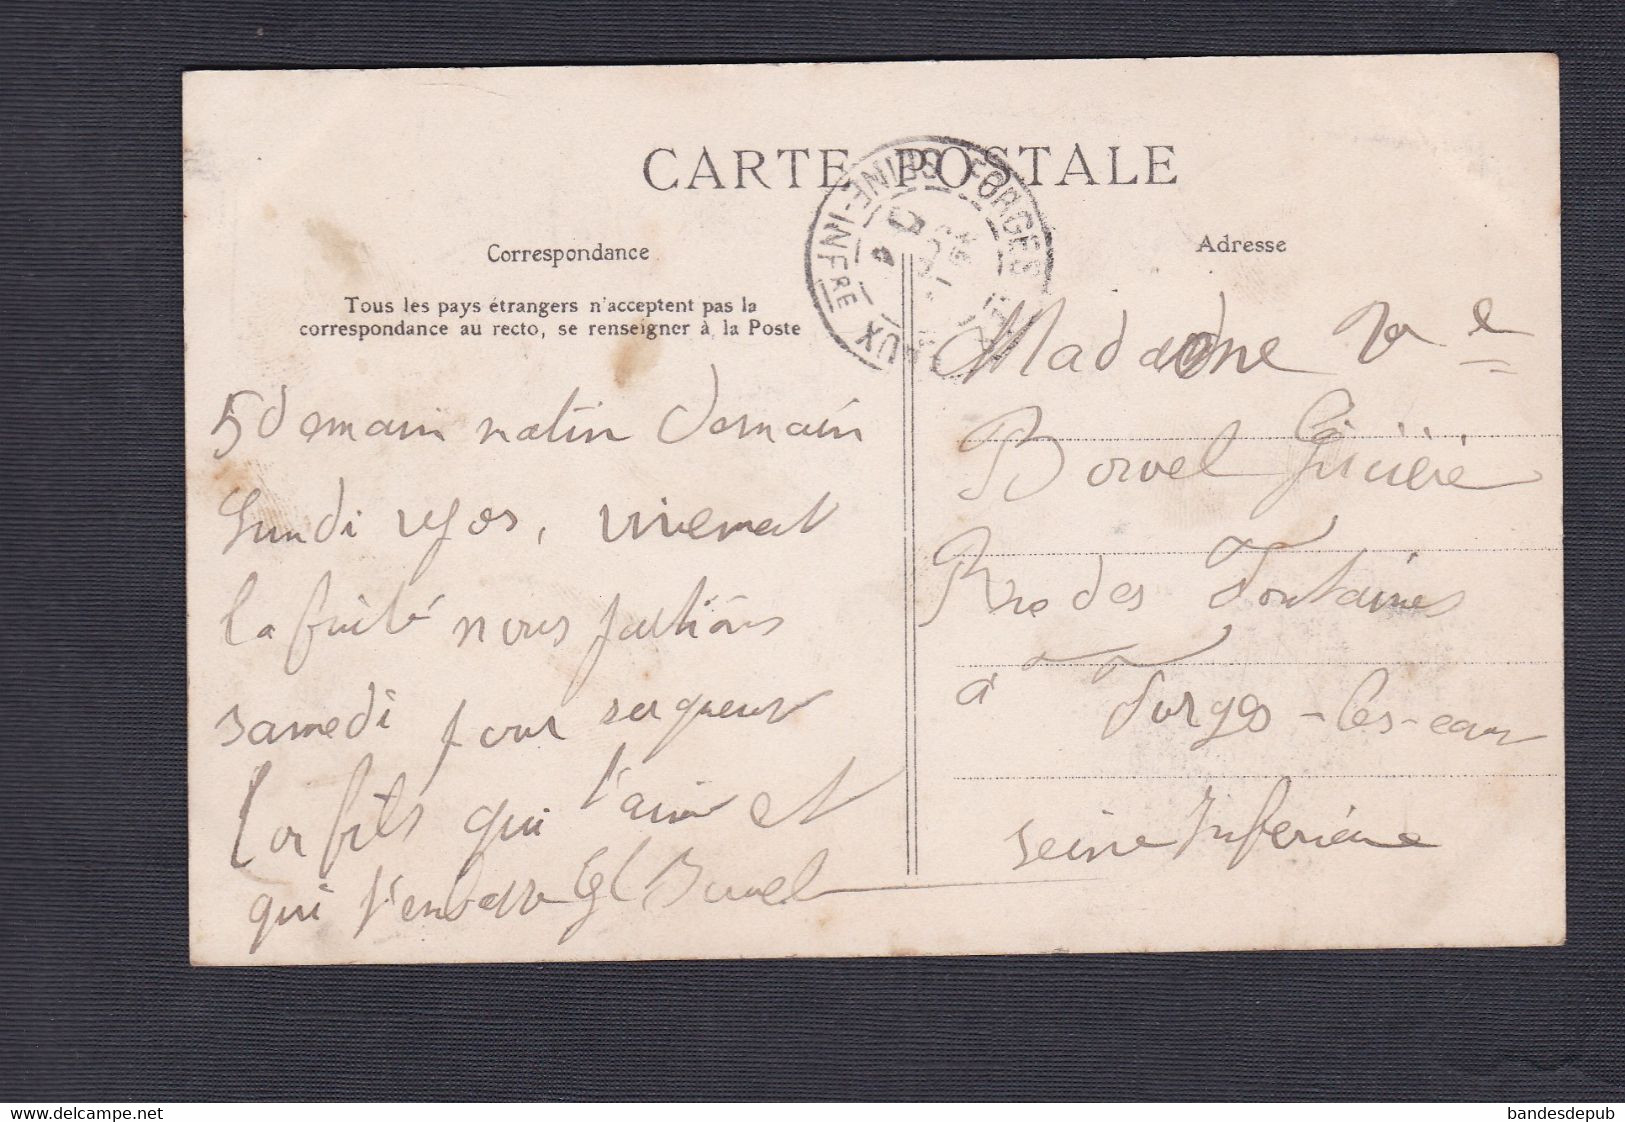 CARTE POSTALE
FORGES
SEINE-INFRE
Correspondance
Tous les pays étrangers n'acceptent pas la
correspondance au recto, se renseigner à la Poste
5 demain matin demain
lundi repos, vivement
la fuite nous partions
samedi pour
Ton fils qui t'aime et
qui t'embrasse
Adresse
Madame Vve
Borvel
Rue des Fontaines
à Forges-les-eaux
Seine Inférieure
www.delcampe.net
bandesdepub